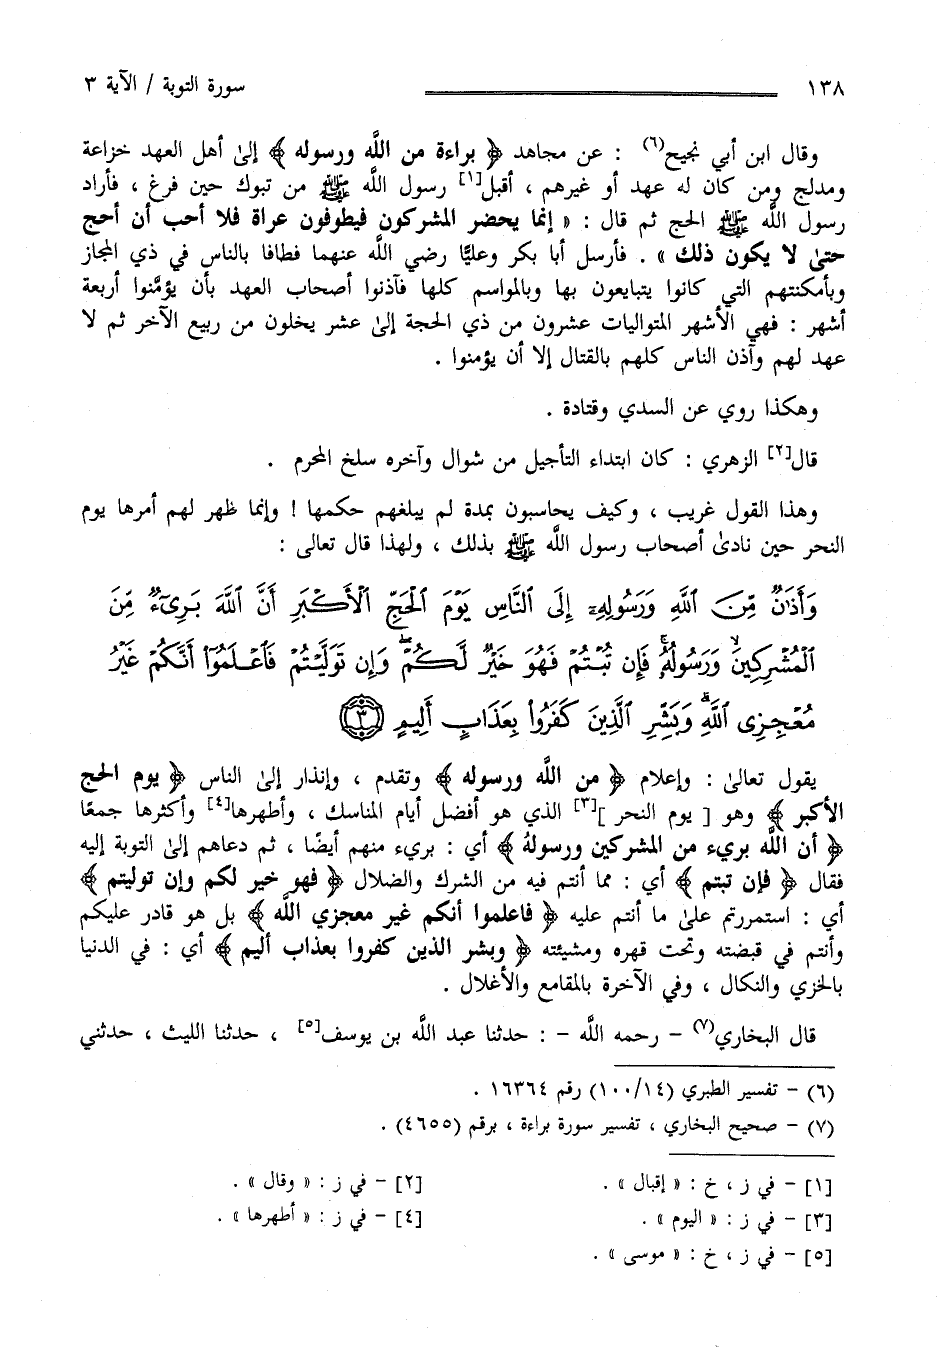 ١٣٨ سورة التوبة / الآية ٣
وقال ابن أبي نجيح(٦) : عن مجاهد ﴿ براءة من اللَّه ورسوله ﴾ إلىٰ أهل العهد خزاعة
ومدلج ومن كان له عهد أو غيرهم ، أقبل[١] رسول اللَّه ﷺ من تبوك حين فرغ ، فأراد
رسول اللَّه ﷺ الحج ثم قال : « إنما يحضر المشركون فيطوفون عراة فلا أحب أن أحج
حتىٰ لا يكون ذلك » . فأرسل أبا بكر وعليًّا رضي اللَّه عنهما فطافا بالناس في ذي المجاز
وبأمكنتهم التي كانوا يتبايعون بها وبالمواسم كلها فآذنوا أصحاب العهد بأن يؤمَّنوا أربعة
أشهر : فهي الأشهر المتواليات عشرون من ذي الحجة إلىٰ عشر يخلون من ربيع الآخر ثم لا
عهد لهم وآذن الناس كلهم بالقتال إلا أن يؤمنوا .
وهكذا روي عن السدي وقتادة .
قال[٢] الزهري : كان ابتداء التأجيل من شوال وآخره سلخ المحرم .
وهذا القول غريب ، وكيف يحاسبون بمدة لم يبلغهم حكمها ! وإنما ظهر لهم أمرها يوم
النحر حين نادىٰ أصحاب رسول اللَّه ﷺ بذلك ، ولهذا قال تعالى :
وَأَذَٰنٌ مِّنَ ٱللَّهِ وَرَسُولِهِۦٓ إِلَى ٱلنَّاسِ يَوْمَ ٱلْحَجِّ ٱلْأَكْبَرِ أَنَّ ٱللَّهَ بَرِىٓءٌ مِّنَ
ٱلْمُشْرِكِينَ ۙ وَرَسُولُهُۥ ۚ فَإِن تُبْتُمْ فَهُوَ خَيْرٌ لَّكُمْ ۖ وَإِن تَوَلَّيْتُمْ فَٱعْلَمُوٓا۟ أَنَّكُمْ غَيْرُ
مُعْجِزِى ٱللَّهِ ۗ وَبَشِّرِ ٱلَّذِينَ كَفَرُوا۟ بِعَذَابٍ أَلِيمٍ ٣
يقول تعالىٰ : وإعلام ﴿ من اللَّه ورسوله ﴾ وتقدم ، وإنذار إلىٰ الناس ﴿ يوم الحج
الأكبر ﴾ وهو [ يوم النحر ][٣] الذي هو أفضل أيام المناسك ، وأطهرها[٤] وأكثرها جمعًا
﴿ أن اللَّه بريء من المشركين ورسولهُ ﴾ أي : بريء منهم أيضًا ، ثم دعاهم إلىٰ التوبة إليه
فقال ﴿ فإن تبتم ﴾ أي : مما أنتم فيه من الشرك والضلال ﴿ فهو خير لكم وإن توليتم ﴾
أي : استمررتم علىٰ ما أنتم عليه ﴿ فاعلموا أنكم غير معجزي اللَّه ﴾ بل هو قادر عليكم
وأنتم في قبضته وتحت قهره ومشيئته ﴿ وبشر الذين كفروا بعذاب أليم ﴾ أي : في الدنيا
بالخزي والنكال ، وفي الآخرة بالمقامع والأغلال .
قال البخاري(٧) – رحمه اللَّه – : حدثنا عبد اللَّه بن يوسف[٥] ، حدثنا الليث ، حدثني
(٦) – تفسير الطبري (١٠٠/١٤) رقم ١٦٣٦٤ .
(٧) – صحيح البخاري ، تفسير سورة براءة ، برقم (٤٦٥٥) .
[١] – في ز ، خ : « إقبال » . [٢] – في ز : « وقال » .
[٣] – في ز : « اليوم » . [٤] – في ز : « أظهرها » .
[٥] – في ز ، خ : « موسى » .